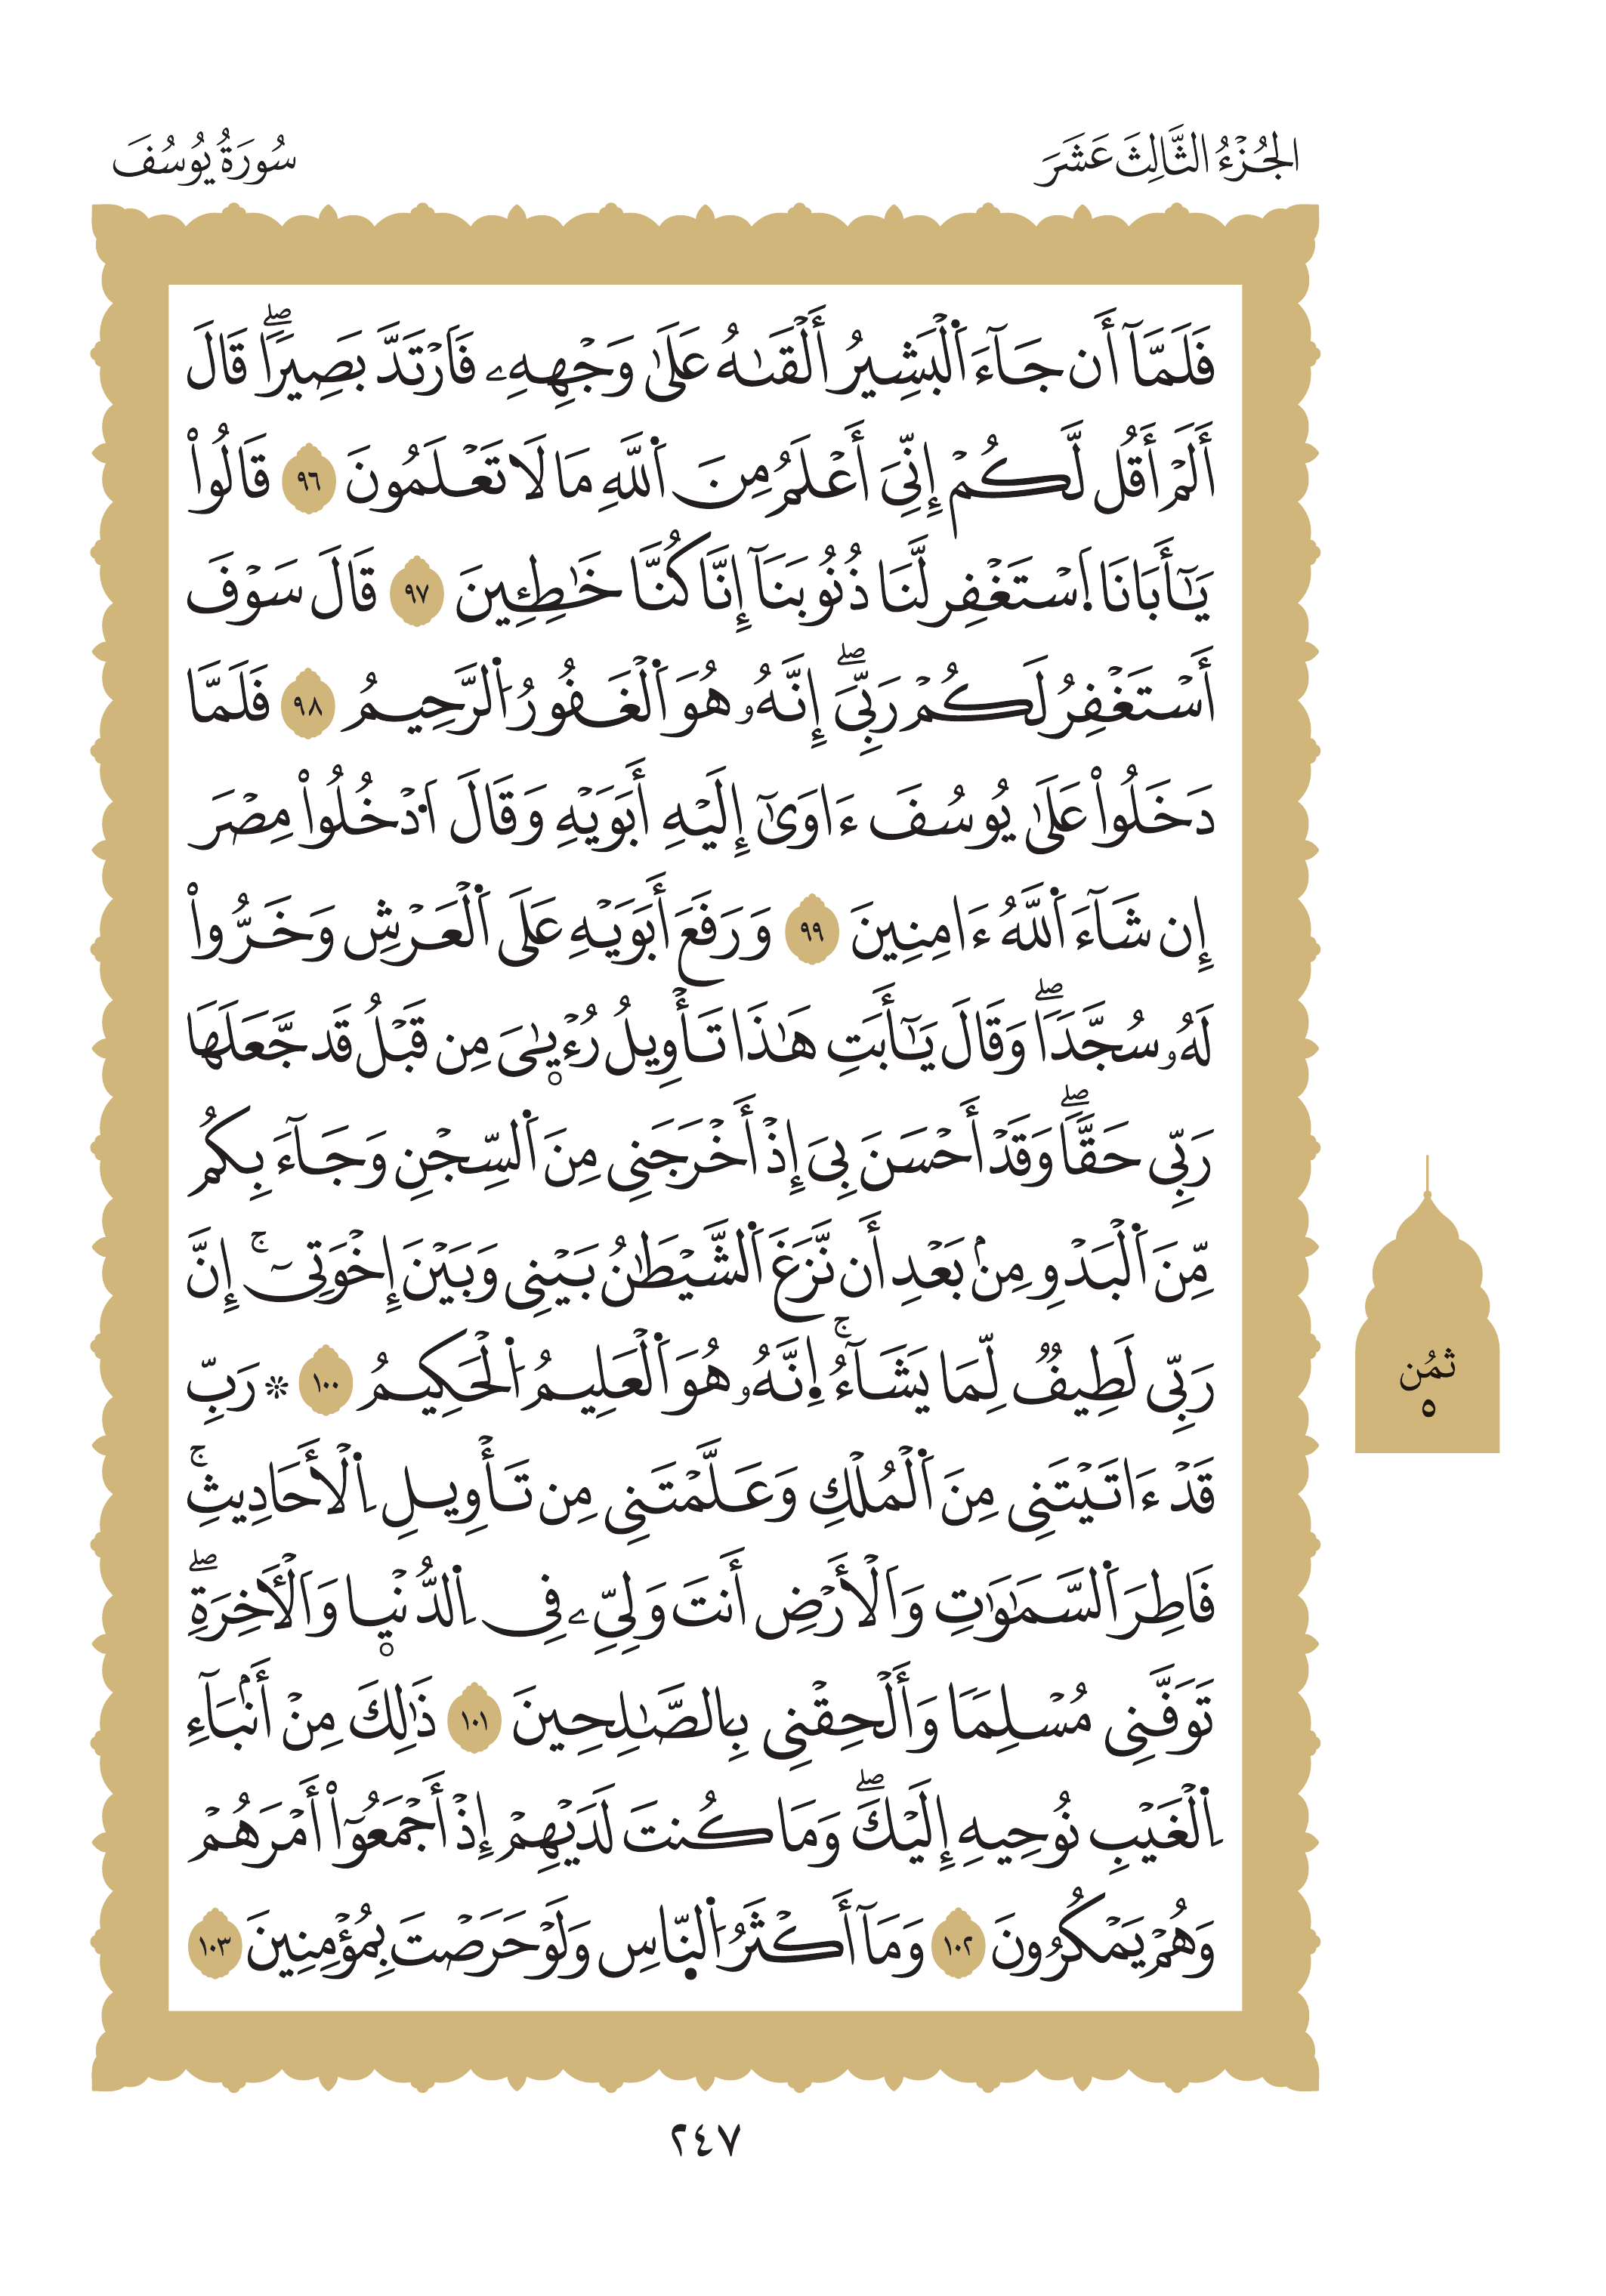 الجُزْءُ الثَّالِثَ عَشَرَ
سُورَةُ يُوسُفَ
فَلَمَّآ أَن جَآءَ اَ۬لْبَشِيرُ أَلْقَىٰهُ عَلَىٰ وَجْهِهِۦ فَارْتَدَّ بَصِيرٗاۖ قَالَ
أَلَمْ أَقُل لَّكُمْ إِنِّيَ أَعْلَمُ مِنَ اَ۬للَّهِ مَا لَا تَعْلَمُونَ ٩٦ قَالُواْ
يَٰٓأَبَانَا اَ۪سْتَغْفِر لَّنَا ذُنُوبَنَآ إِنَّا كُنَّا خَٰطِـِٕينَ ٩٧ قَالَ سَوْفَ
أَسْتَغْفِرُ لَكُمْ رَبِّيَۖ إِنَّهُۥ هُوَ اَ۬لْغَفُورُ اُ۬لرَّحِيمُ ٩٨ فَلَمَّا
دَخَلُواْ عَلَىٰ يُوسُفَ ءَاوَىٰٓ إِلَيْهِ أَبَوَيْهِ وَقَالَ اَ۟دْخُلُواْ مِصْرَ
إِن شَآءَ اَ۬للَّهُ ءَامِنِينَ ٩٩ وَرَفَعَ أَبَوَيْهِ عَلَى اَ۬لْعَرْشِ وَخَرُّواْ
لَهُۥ سُجَّدٗاۖ وَقَالَ يَٰٓأَبَتِ هَٰذَا تَأْوِيلُ رُءْيٰٜيَ مِن قَبْلُ قَد جَّعَلَهَا
رَبِّي حَقّٗاۖ وَقَدْ أَحْسَنَ بِيَ إِذْ أَخْرَجَنِي مِنَ اَ۬لسِّجْنِ وَجَآءَ بِكُم
مِّنَ اَ۬لْبَدْوِ مِنۢ بَعْدِ أَن نَّزَغَ اَ۬لشَّيْطَٰنُ بَيْنِي وَبَيْنَ إِخْوَتِيٓۚ إِنَّ
رَبِّي لَطِيفٞ لِّمَا يَشَآءُۚ اِ۪نَّهُۥ هُوَ اَ۬لْعَلِيمُ اُ۬لْحَكِيمُ ١٠٠ ۞ رَبِّ
قَدْ ءَاتَيْتَنِي مِنَ اَ۬لْمُلْكِ وَعَلَّمْتَنِي مِن تَأْوِيلِ اِ۬لْأَحَادِيثِۚ
فَاطِرَ اَ۬لسَّمَٰوَٰتِ وَالْأَرْضِ أَنتَ وَلِيِّۦ فِي اِ۬لدُّنْيٜا وَالْأٓخِرَةِۖ
تَوَفَّنِي مُسْلِمٗا وَأَلْحِقْنِي بِالصَّٰلِحِينَ ١٠١ ذَٰلِكَ مِنْ أَنۢبَآءِ
اِ۬لْغَيْبِ نُوحِيهِ إِلَيْكَۖ وَمَا كُنتَ لَدَيْهِمْ إِذْ أَجْمَعُوٓاْ أَمْرَهُمْ
وَهُمْ يَمْكُرُونَ ١٠٢ وَمَآ أَكْثَرُ اُ۬لنّ۪اسِ وَلَوْ حَرَصْتَ بِمُؤْمِنِينَ ١٠٣
ثُمُن
٥
٢٤٧